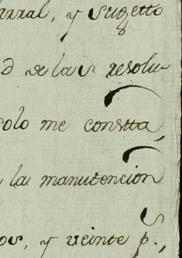 arral, y sugetto
d de las resolu-
colo me constta,
la manutencion
os, y veinte p.,